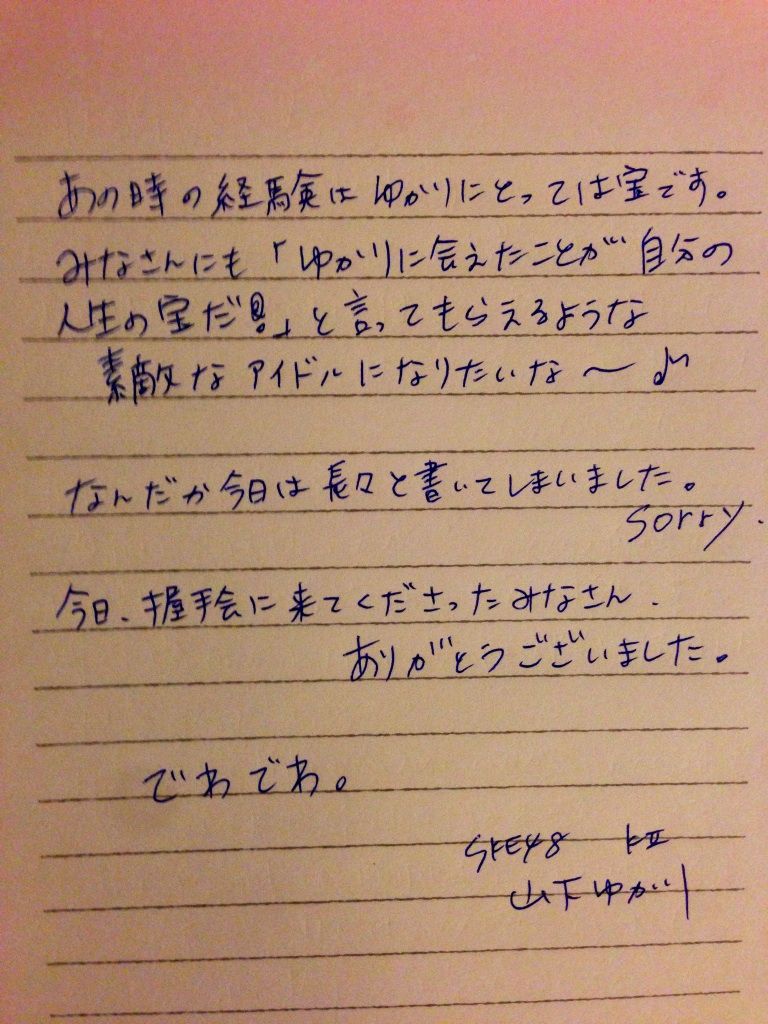 あの時の経験はゆかりにとっては宝です。
みなさんにも「ゆかりに会えたことが自分の
人生の宝だ!!」と言ってもらえるような
素敵なアイドルになりたいな〜♪
なんだか今日は長々と書いてしまいました。
sorry.
今日、握手会に来てくださったみなさん、
ありがとうございました。
でわでわ。
SKE48 KⅡ
山下ゆかり